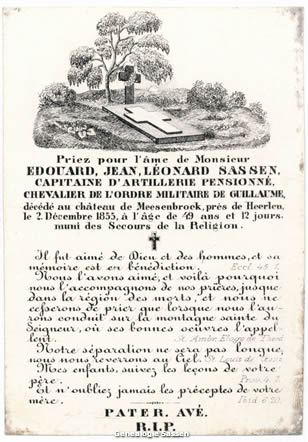 Priez pour l'âme de Monsieur
EDOUARD, JEAN, LÉONARD SASSEN,
CAPITAINE D'ARTILLERIE PENSIONNÉ,
CHEVALIER DE L'ORDRE MILITAIRE DE GUILLAUME,
décédé au château de Meesenbroek, près de Heerlen,
le 2 Décembre 1855, à l'âge de 49 ans et 12 jours,
muni des Secours de la Religion.
Il fut aimé de Dieu et des hommes, et sa
mémoire est en bénédiction. Eccl. 45. 1.
Nous l'avons aimé, et voilà pourquoi
nous l'accompagnons de nos prières, jusque
dans la région des morts, et nous ne
cesserons de prier que lorsque nous l'au-
rons conduit sur la montagne sainte du
Seigneur, où ses bonnes oeuvres l'appel-
lent. St. Ambr. Eloge de
Notre séparation ne sera pas longue,
nous nous reverrons au Ciel. St. Louis de
Mes enfants, suivez les leçons de votre
père.
Et n'oubliez jamais les préceptes de votre
mère. Ibid 6. 20.
PATER. AVÉ.
R.I.P.
Genealogie Sassen